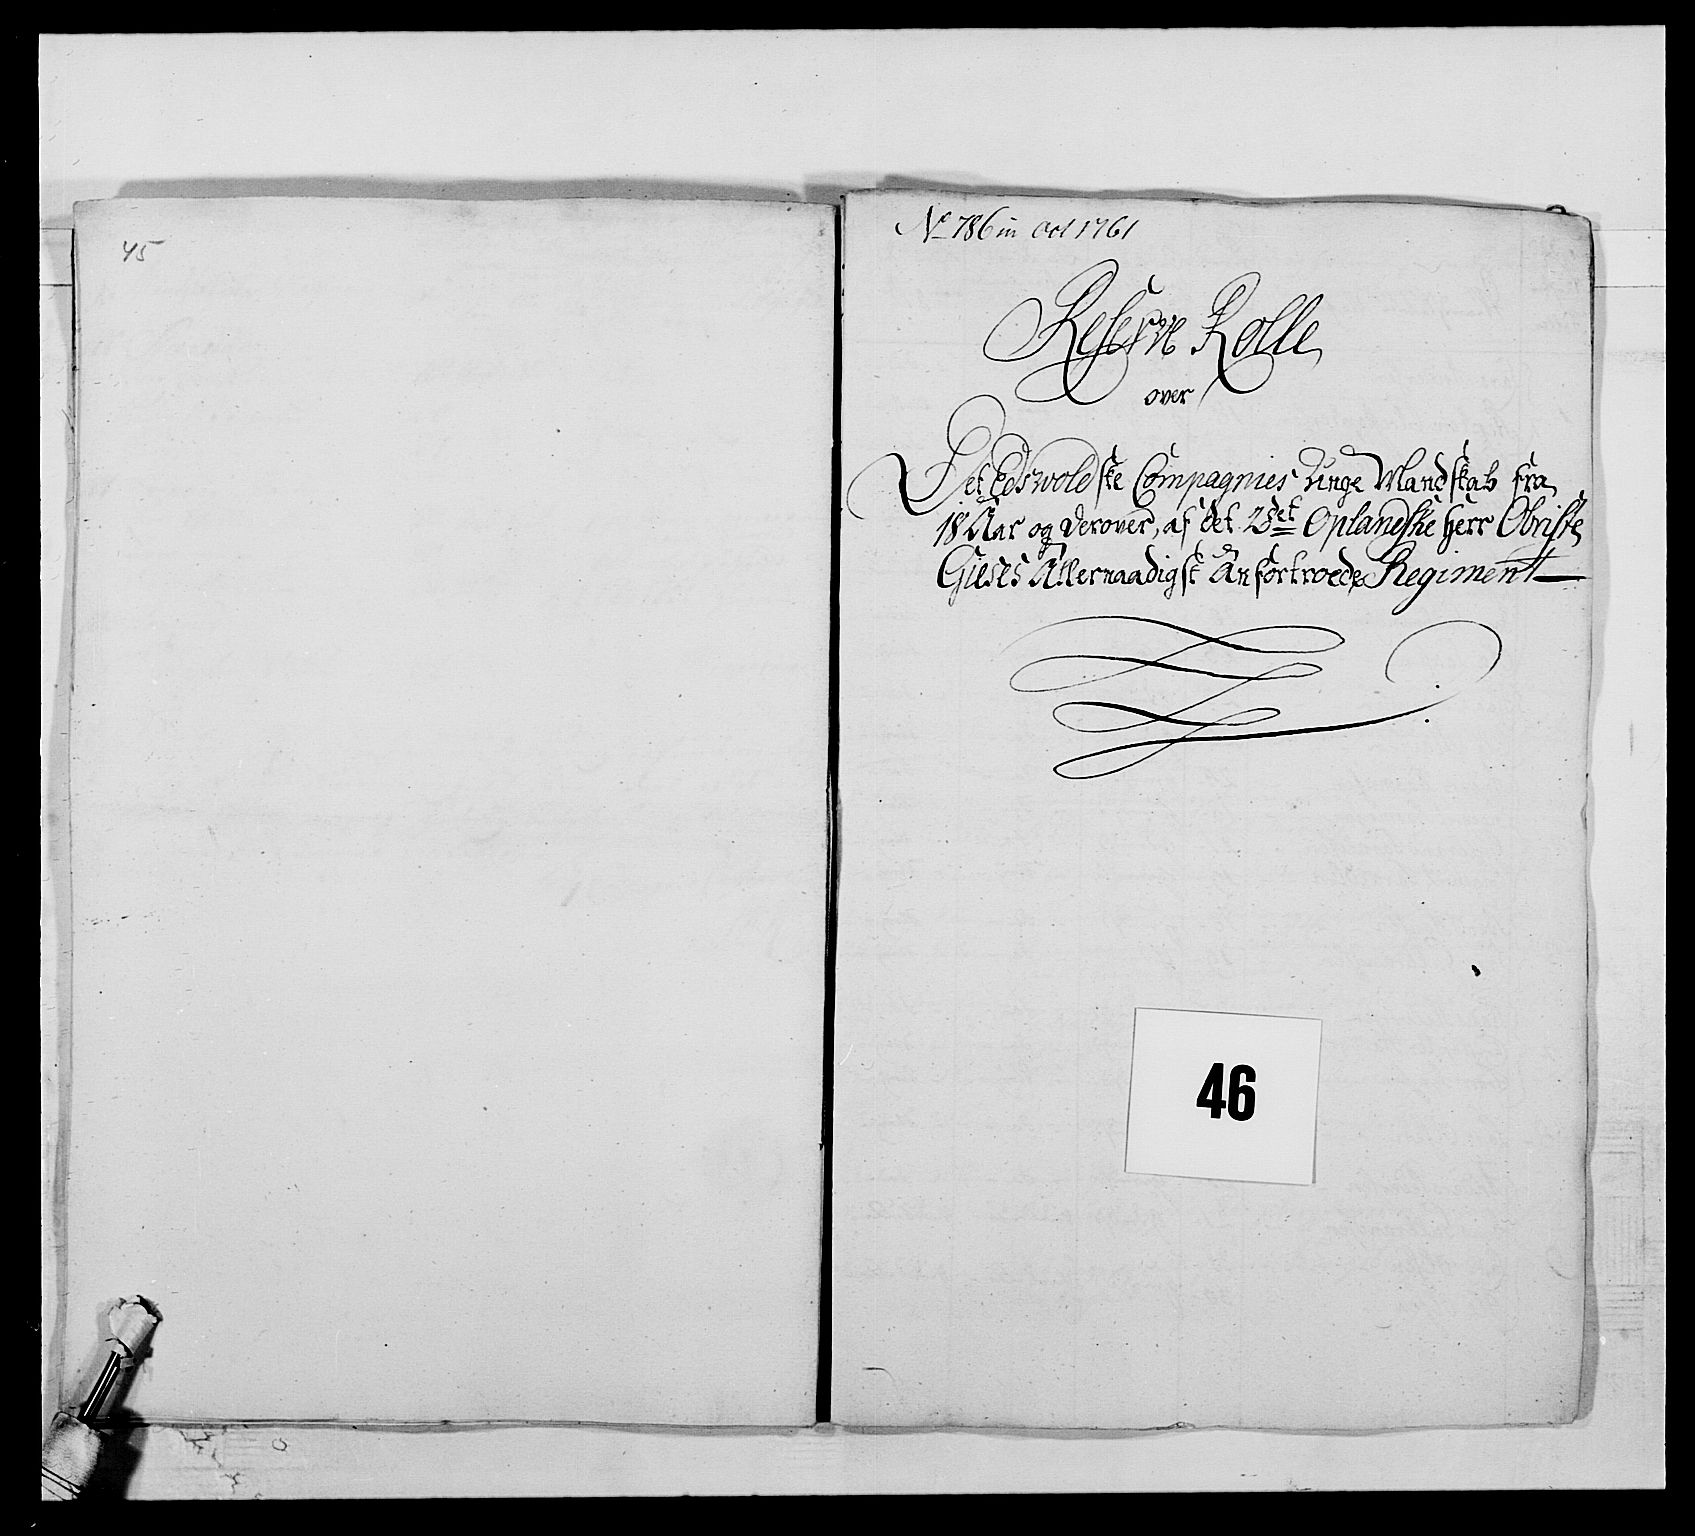 45
No 786 in Oct 1761
Reserve Rolle
over
Det Edswoldske Compagnies Unge Mandskab fra
18 Aar og derover, af det 2det Oplandske Herr Obriste
Gieses Allernaadigst Anfortroede Regiment
46